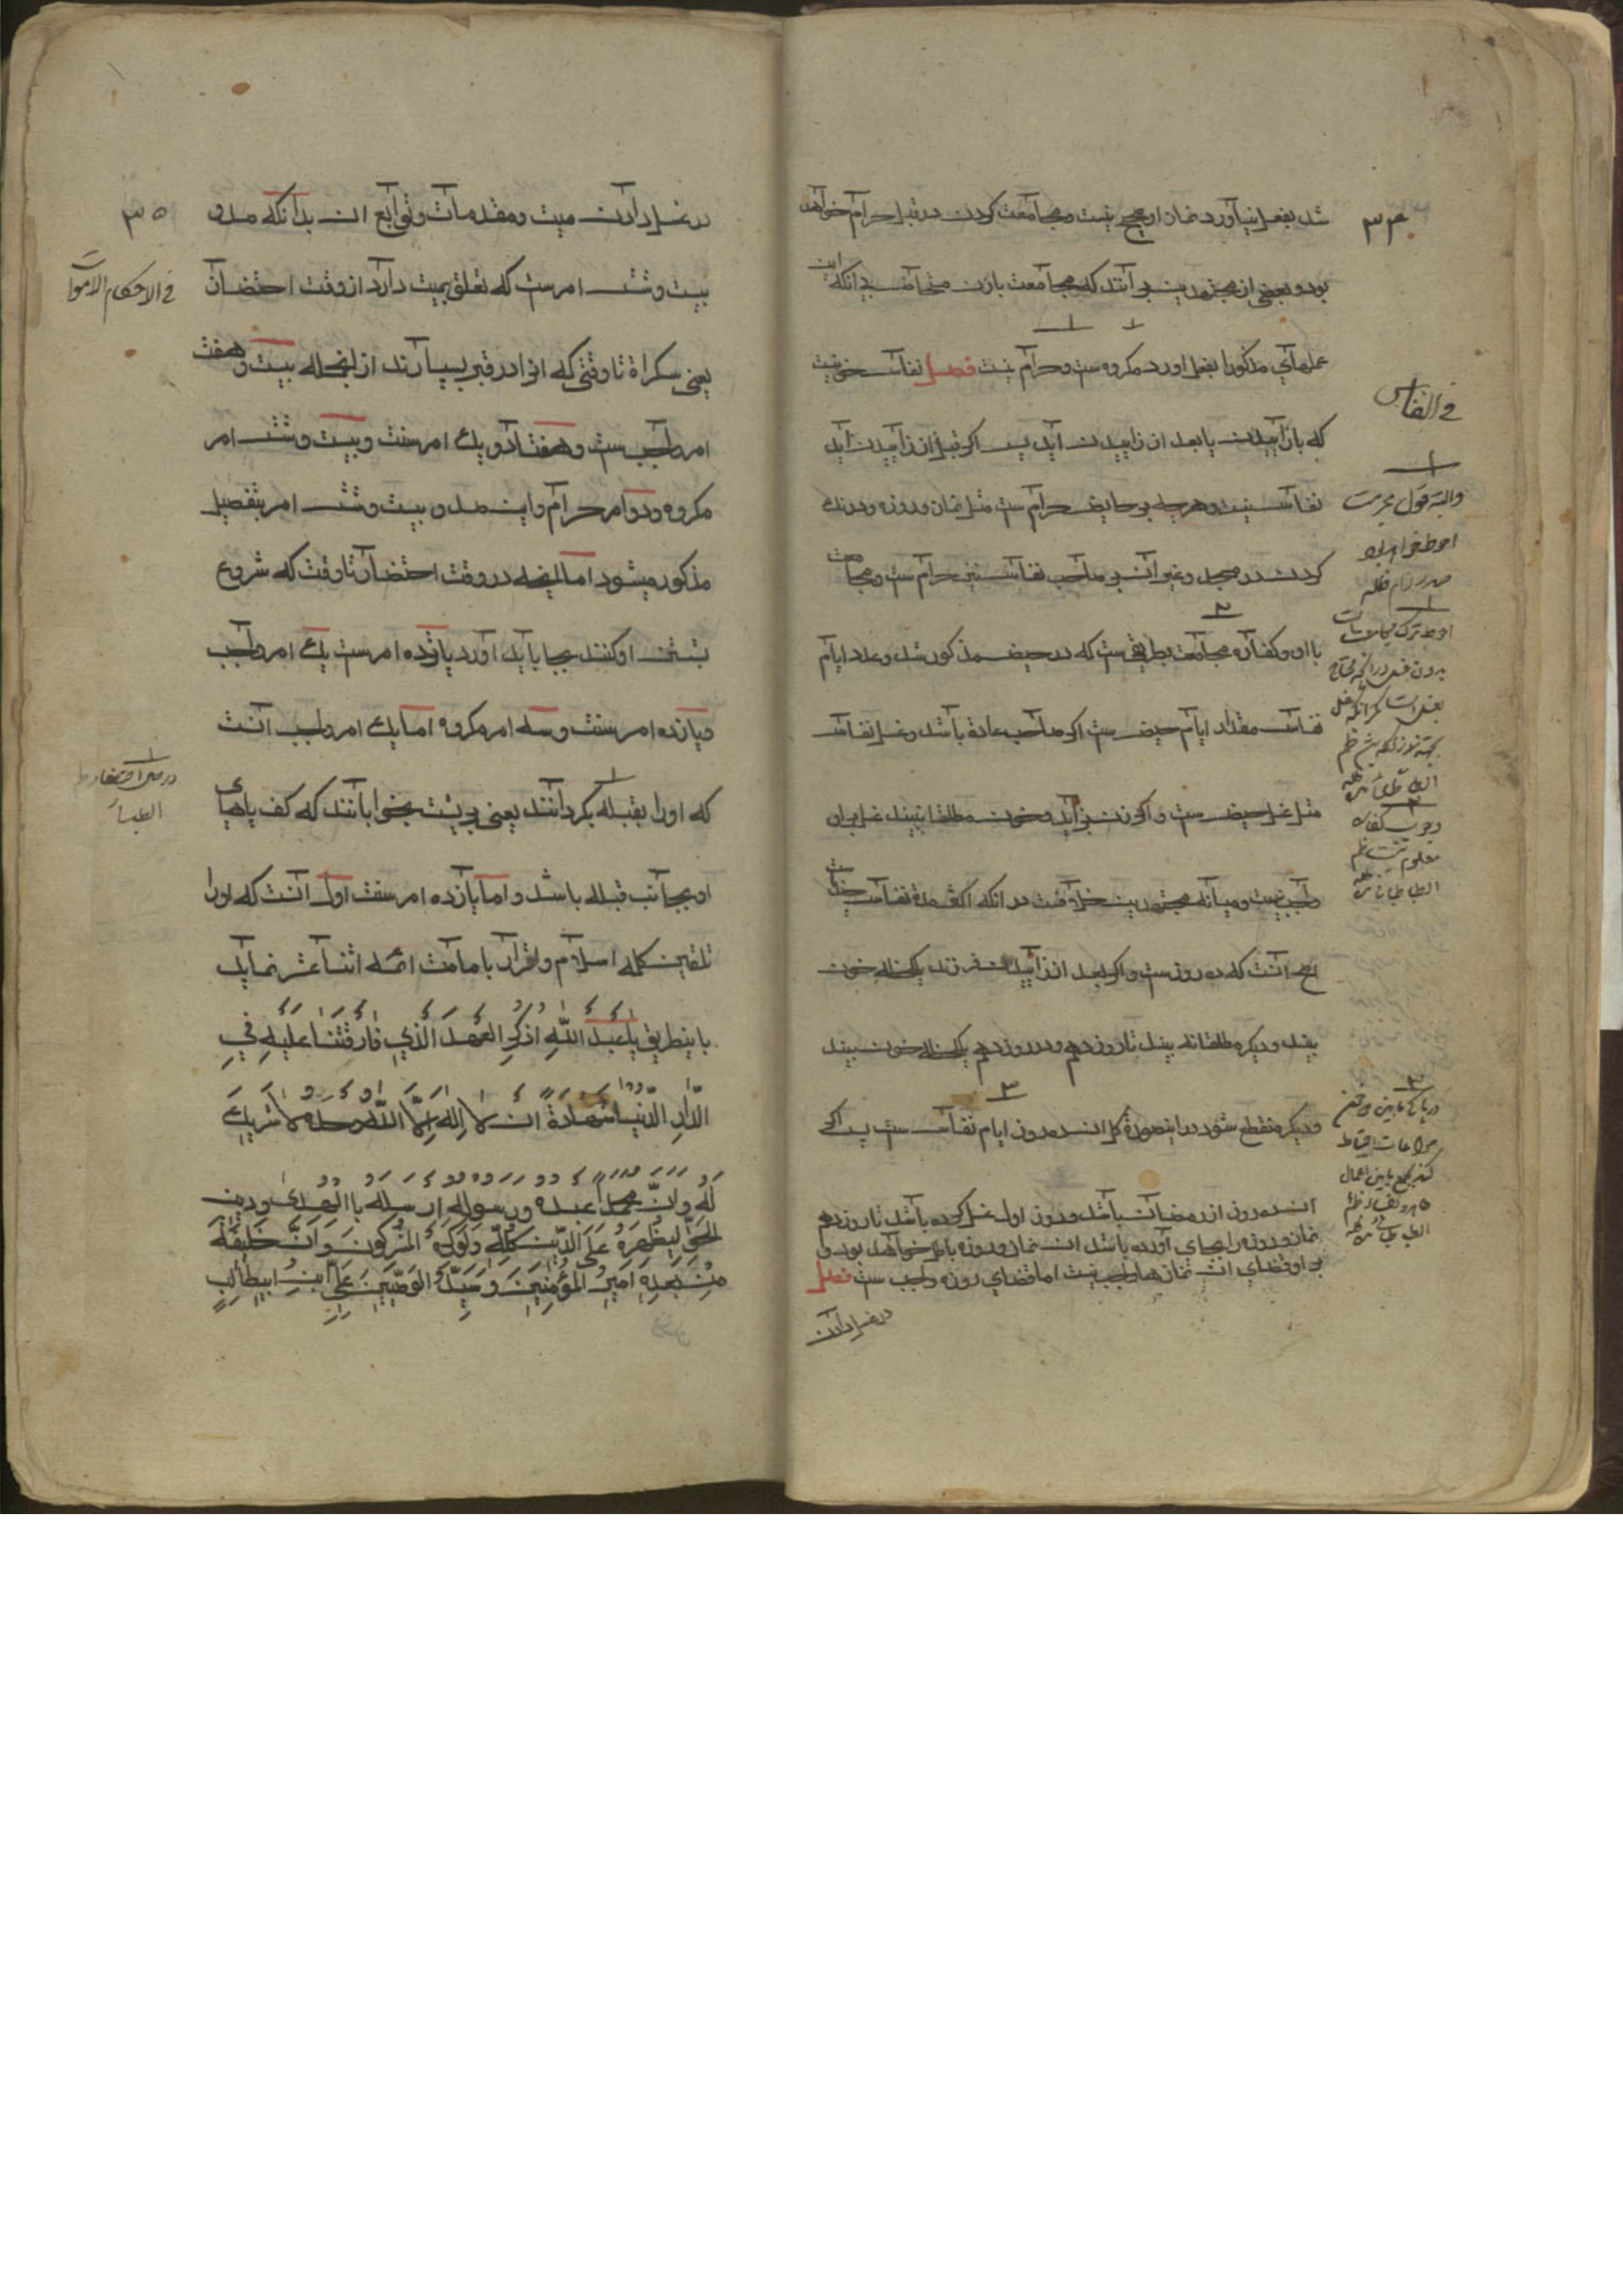 ۳۴
شد بفعل نیاورد نماز او صحیح نیست و مجامعت کردن در قبل حرام خواهد
بود و بعضی از مجتهدین بر آنند که مجامعت با زن مستحاضه بدانکه این
عملهای مذکور را بفعل اورد مکروه ست و حرام نیست فصل نفاس خونیست
که با زاییدن یا بعد از زاییدن آید پس اکر قبل از زاییدن اید
نفاس نیست و هرچه بر حایض حرام ست مثل نماز و روزه و درنک
کردن در مسجد و غیر آن بر صاحب نفاس نیز حرام ست و مجامعت
با او و کفاره مجامعت بطریقی ست که در حیض مذکور شد و عدد ایام
نفاس مقدار ایام حیض ست اکر صاحب عادة باشد و غسل نفاس
مثل غسل حیض ست و اکر زن بزاید و خون مطلقا نبیند غسل بر او
واجب نیست و میانه مجتهدین خلافست در انکه اکثر مدة نفاس چند است
اصح آنست که ده روز ست و اکر بعد از زاییدن فرزند یکلحظه خون
بیند و دیکر مطلقا نه بیند تا روز دهم و در روز دهم یکلحظه خون بیند
و دیکر منقطع شود در اینصورة کل ان ده روز ایام نفاس ست پس اکر
ان ده روز از رمضان باشد و روز اول غسل کرده باشد تا روز دهم
نماز و روزه را بجای آورده باشد ان نماز و روزه باطل خواهد بود و
بر او قضای ان نمازها واجب نیست اما قضای روزه واجب ست فصل
در غسل دادن
فی النفاس
والبته قول بحرمت
احوط خواهد بود
صدر دام ظله
وجوب کفاره
معلوم نیست
۳۵
در غسل دادن میت و مقدمات و توابع ان بدانکه صد و
بیست و شش امر ست که تعلق بمیت دارد از وقت احتضار
یعنی سکراة تا وقتی که انرا در قبر بسپارند از انجمله بیست و هفت
امر واجب ست و هفتاد و یک امر سنت و بیست و شش امر
مکروه و دو امر حرام و این صد و بیست و شش امر بتفصیل
مذکور میشود اما انچه در وقت احتضار تا وقت که شروع
بشستن او کنند بجا باید آورد پانزده امر ست یک امر واجب
و یازده امر سنت و سه امر مکروه اما یک امر واجب آنست
که او را بقبله بکردانند یعنی بر پشت بخوابانند که کف پاهای
او بجانب قبله باشد و اما یازده امر سنت اول آنست که او را
تلقین کلمه اسلام و اقرار بامامت ائمه اثنا عشر نماید
باینطریق یا عَبدَ اللّهِ اذکُرِ العَهدَ الَّذي فارَقتَنا عَلَيهِ فيِ
الدّارِ الدُّنیا شَهادَةَ ان لا اِلهَ اِلاَّ اللّهُ وحده لا شریكَ
لَهُ وَانَّ محمداً عبده ورسوله ارسله باالهدی ودین
الحَقِّ لِیُظهِرَهُ عَلَی الدّینِ کُلِّهِ وَلَو کَرِهَ المُشرِکُونَ وَاَنَّ خَلیفَتَهُ
مِن بَعدِهِ اَمیرُ المُؤمِنینَ وَسَیِّدُ الوَصِیّینَ عَلِیِّ ابنِ ابیطالِبٍ
فی الاحکام الاموات